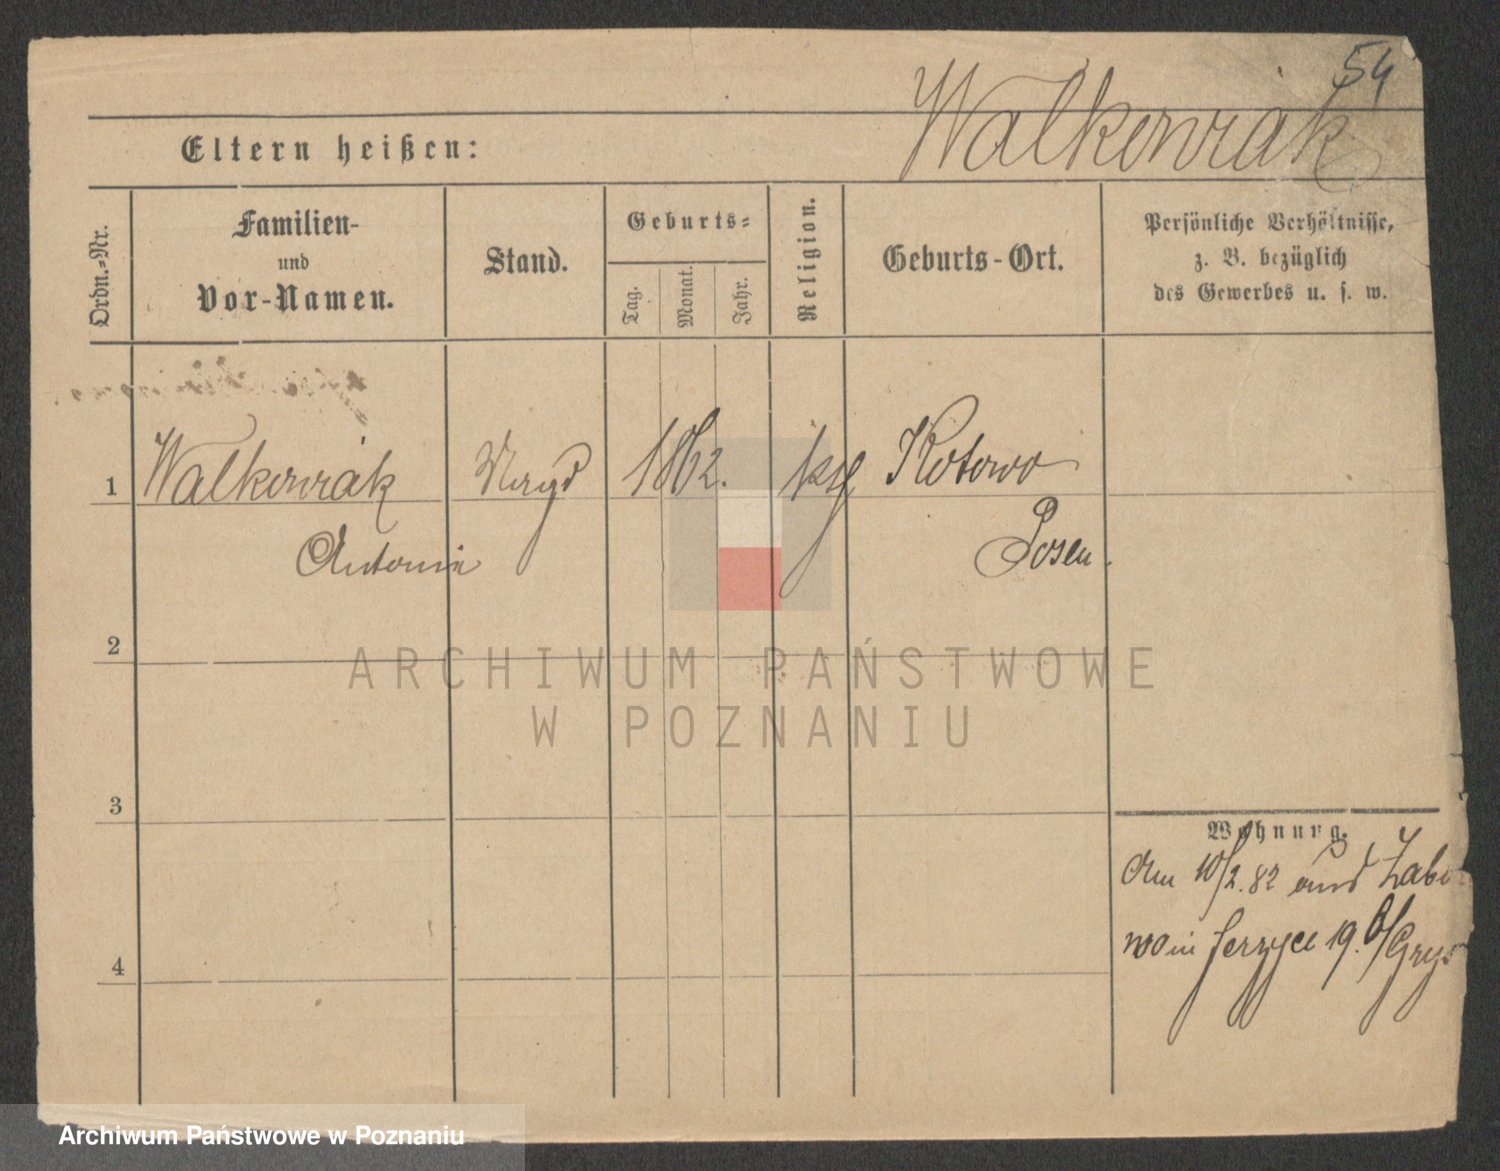 54
Walkowiak
Eltern heißen:
Ordn.=Nr.
Familien-
und
Vor-Namen.
Stand.
Geburts=
Tag.
Monat.
Jahr.
Religion.
Geburts-Ort.
Persönliche Verhältnisse,
z. B. bezüglich
des Gewerbes u. s. w.
1 Walkowiak Magd 1862. kth Kotowo
Antonia Posen.
2
ARCHIWUM PAŃSTWOWE
W POZNANIU
3
4
Wohnung.
Am 10/2.82 aus Żabi
wo in Jerzyce 19. b/Grys
Archiwum Państwowe w Poznaniu